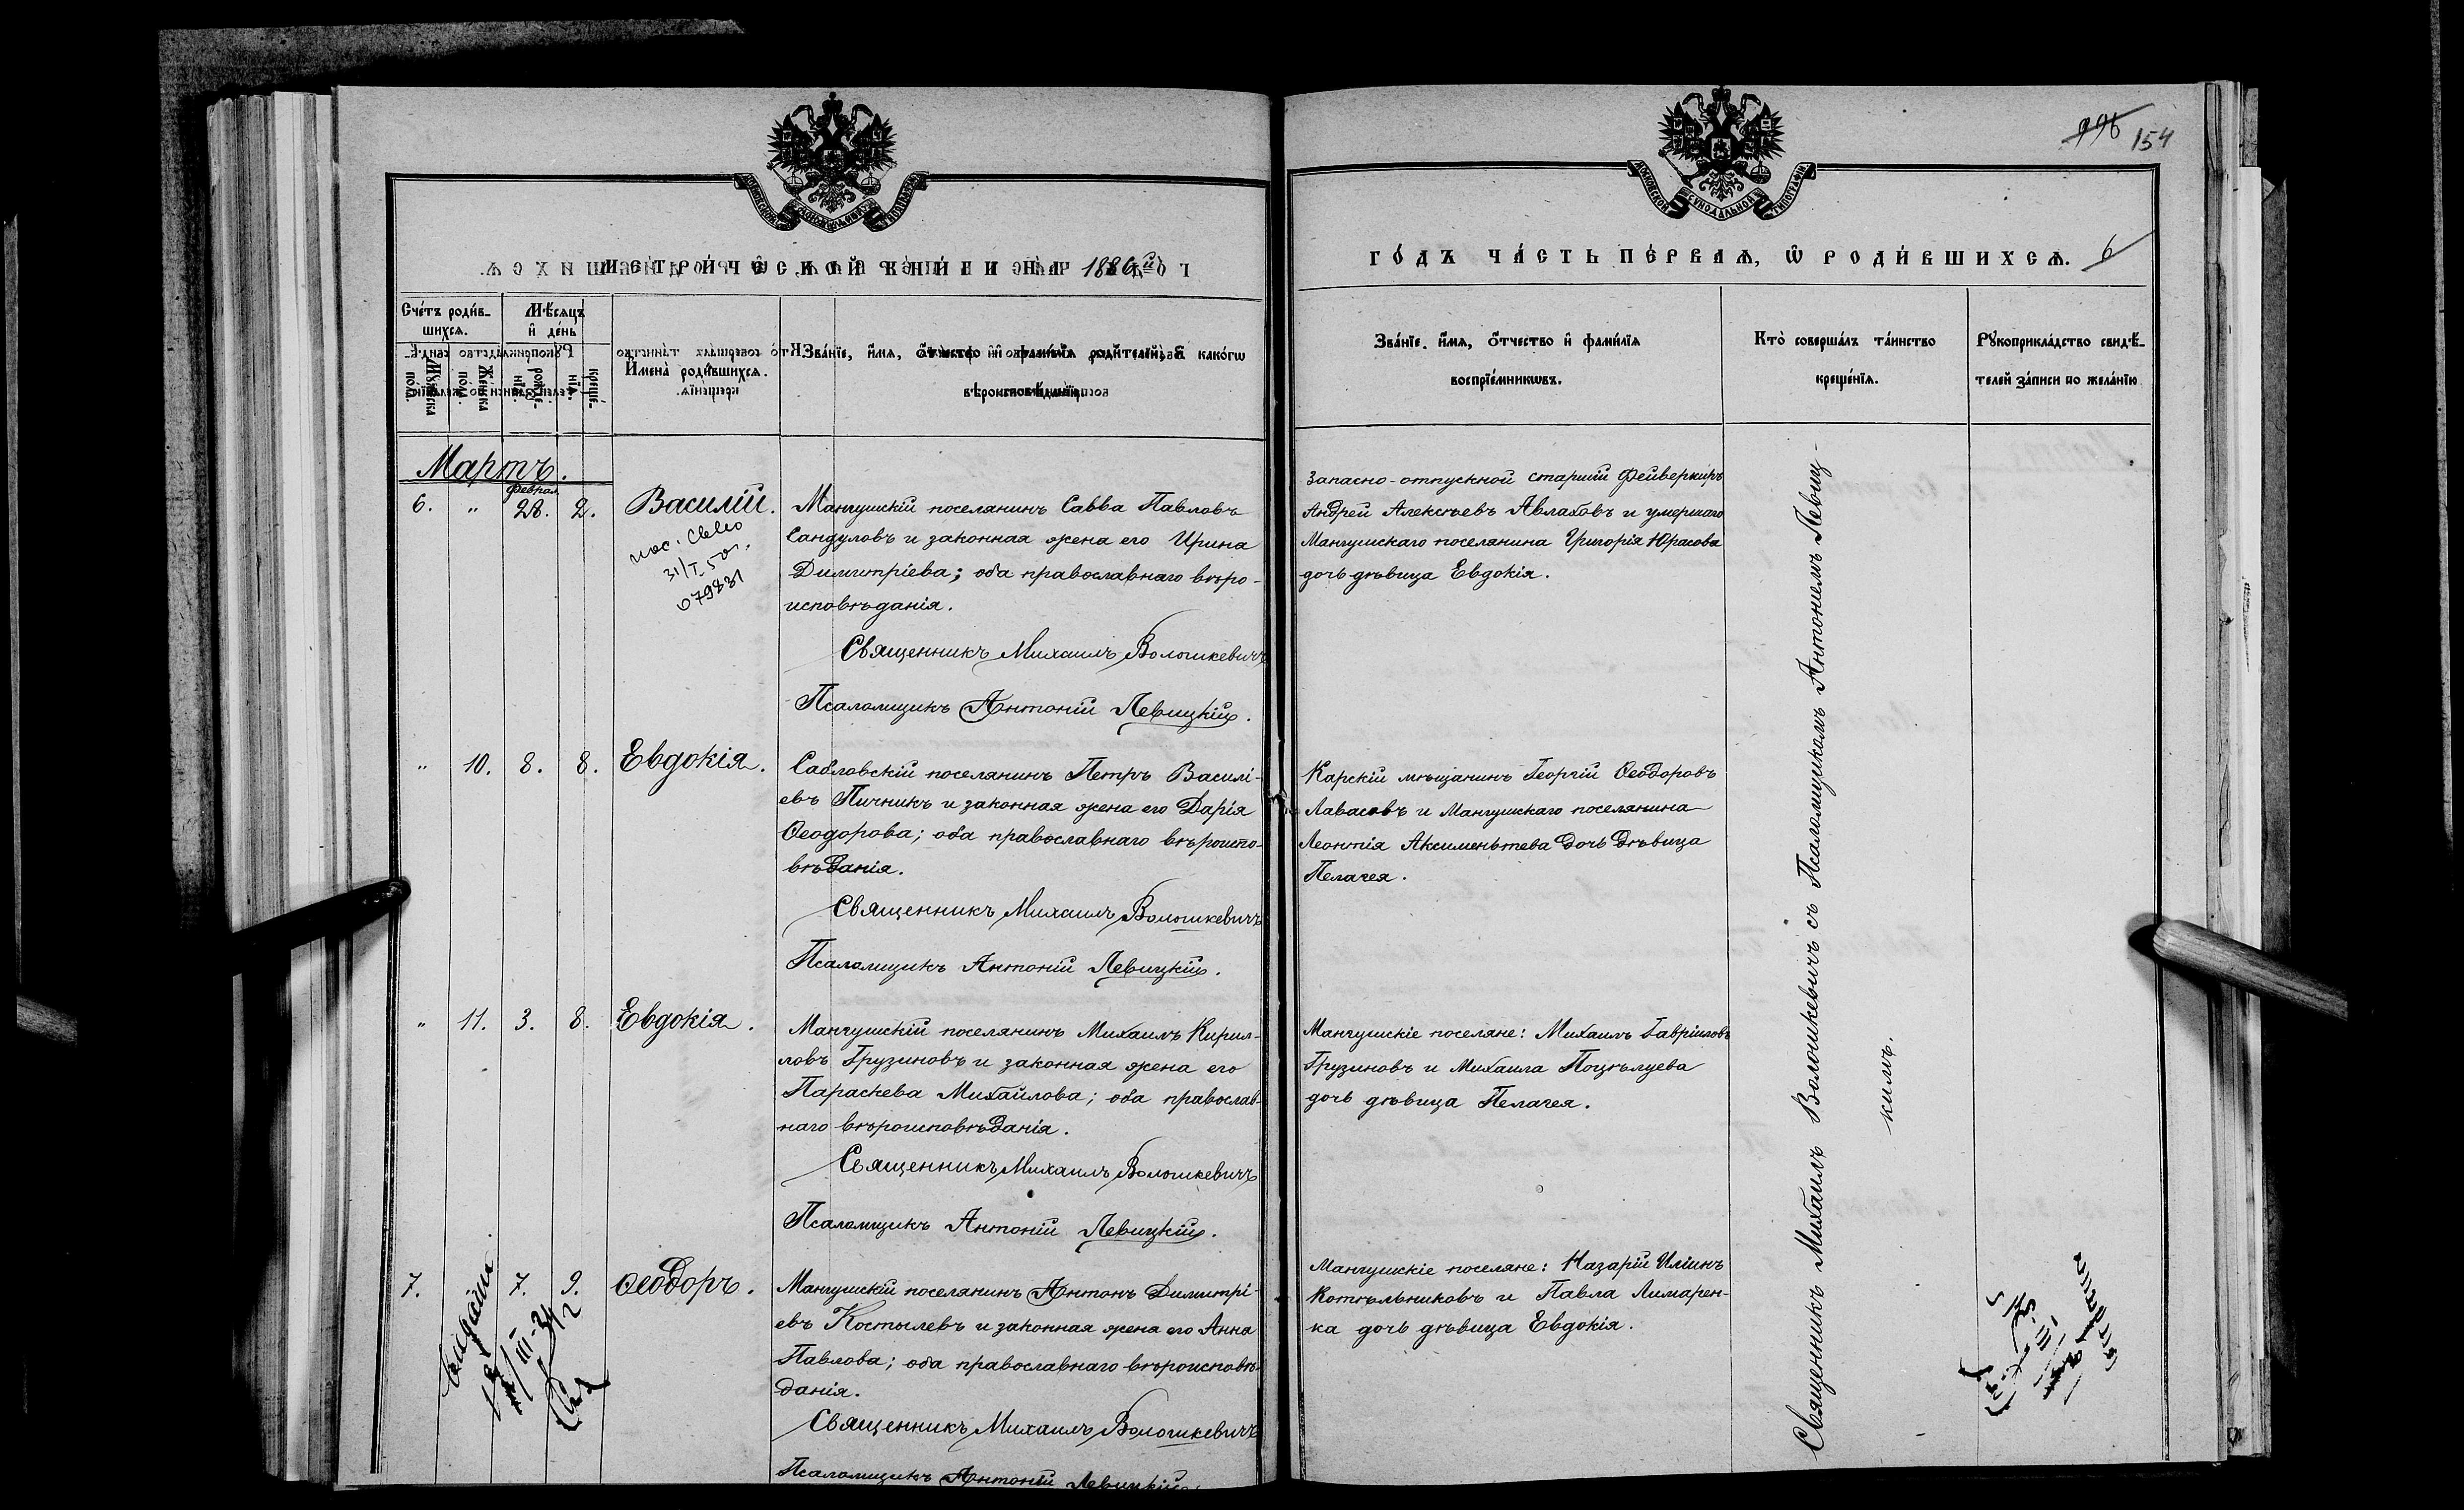 МОСКОВСКОЙ СУНОДАЛЬНОЙ ТИПОГРАФІИ
1886й
Счéтъ роди́в-
шихсѧ.
Мѣ́сѧцъ
и҆ де́нь
Мꙋ́жеска по́ла.
Же́нска по́ла.
рожде́-
нїѧ.
креще́-
нїѧ.
И҆мена̀ роди́вшихсѧ.
Зва́нїе, и҆́мѧ, ѻ҆́тчество и҆ фамі́лїѧ роди́телей, и҆ како́гѡ
вѣроисповѣ́данїѧ.
Мартъ.
6.
"
Феврал.
28.
2.
Василій.
31/I.50г.
079831
Мангушскій поселянинъ Савва Павловъ
Сандуловъ и законная жена его Ирина
Димитріева; оба православнаго вѣро-
исповѣданія.
Священникъ Михаилъ Волошкевичъ
Псаломщикъ Антоній Левицкій.
"
10.
8.
8.
Евдокія.
Сабловскій поселянинъ Петръ Василі-
евъ Пичникъ и законная жена его Дарія
Ѳеодорова; оба православнаго вѣроиспо-
вѣданія.
Священникъ Михаилъ Волошкевичъ
Псаломщикъ Антоній Левицкій.
"
11.
3.
8.
Евдокія.
Мангушскій поселянинъ Михаилъ Кирил-
ловъ Грузиновъ и законная жена его
Параскева Михайлова; оба православ-
наго вѣроисповѣданія.
Священникъ Михаилъ Волошкевичъ
Псаломщикъ Антоній Левицкій.
7.
7.
9.
Ѳеодоръ.
Мангушскій поселянинъ Антонъ Димитрі-
евъ Костылевъ и законная жена его Анна
Павлова; оба православнаго вѣроисповѣ-
данія.
Священникъ Михаилъ Волошкевичъ
Псаломщикъ Антоній Левицкій.
МОСКОВСКОЙ СУНОДАЛЬНОЙ ТИПОГРАФІИ
154
ГО́ДЪ ЧА́СТЬ ПЕ́РВАѦ, Ѿ РОДИ́ВШИХСѦ.
6
Зва́нїе, и҆́мѧ, ѻ҆́тчество и҆ фамі́лїѧ
воспрїе́мникѡвъ.
Кто̀ соверша́лъ та́инство
креще́нїѧ.
Рꙋкоприкла́дство свидѣ́-
телей за́писи по жела́нїю
Запасно-отпускной старшій Фейверкиръ
Андрей Алексѣевъ Авлаховъ и умершаго
Мангушскаго поселянина Григорія Юрасова
дочь дѣвица Евдокія.
Карскій мѣщанинъ Георгій Ѳеодоровъ
Лавасовъ и Мангушскаго поселянина
Леонтія Аксименьтева дочь дѣвица
Пелагея.
Мангушскіе поселяне: Михаилъ Гавріиловъ
Грузиновъ и Михаила Поцѣлуева
дочь дѣвица Пелагея.
Мангушскіе поселяне: Назарій Иліинъ
Котѣльниковъ и Павла Лимарен-
ка дочь дѣвица Евдокія.
Священникъ Михаилъ Волошкевичъ съ Псаломщикомъ Антоніемъ Левиц-
кимъ.